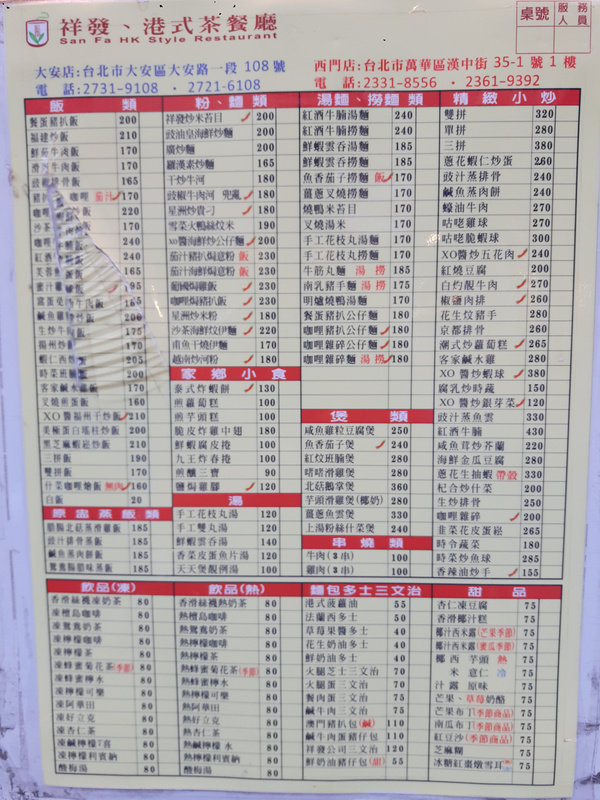 祥發、港式茶餐廳
San Fa HK Style Restaurant
桌號
服務人員
大安店:台北市大安區大安路一段 108號
電 話:2731-9108 ・ 2721-6108
西門店:台北市萬華區漢中街 35-1 號 1 樓
電 話:2331-8556 ・ 2361-9392
飯 類
餐蛋豬扒飯 200
福建炒飯 210
鮮茄牛肉飯 170
滑蛋牛肉飯 170
咖哩 茄汁 170
220
170
240
240
185
195
185
200
175
170
蝦仁西炒飯 205
時菜班腩飯 200
客家鹹水雞飯 170
叉燒煎蛋飯 160
XO醬福州干炒飯 210
美極蛋白瑤柱炒飯 200
黑芝麻蝦崧炒飯 210
三拼飯 190
雙拼飯 170
什菜咖哩燴飯 無肉 160
白飯 20
原盅蒸飯類
臘腸北菇蒸滑雞飯 185
豉汁排骨蒸飯 185
鹹魚蒸肉餅飯 185
鴛鴦腸腊味蒸飯 185
粉、麵類
祥發炒米苔目 200
豉油皇海鮮炒麵 200
廣炒麵 200
羅漢素炒麵 165
干炒牛河 180
豉椒牛肉河 兜亂 180
星洲炒貴刁 180
雪菜火鴨絲炆米 190
xo醬海鮮炒公仔麵 200
茄汁豬扒焗意粉 飯 230
茄汁海鮮焗意粉 飯 230
葡國焗雞飯 230
咖哩焗豬扒飯 230
星洲炒米粉 180
沙茶海鮮炆伊麵 220
甫魚干燒伊麵 170
越南炒河粉 180
家鄉小食
泰式炸蝦餅 130
煎蘿蔔糕 100
煎芋頭糕 100
脆皮炸雞中翅 180
鮮蝦腐皮捲 100
九王炸春捲 100
煎釀三寶 90
鹽焗雞腳 120
湯
手工花枝丸湯 120
手工雙丸湯 120
鮮蝦雲吞湯 140
香菜皮蛋魚片湯 120
天天煲靚例湯 100
湯麵、撈麵類
紅酒牛腩湯麵 240
紅酒牛腩撈麵 240
鮮蝦雲吞湯麵 185
鮮蝦雲吞撈麵 185
魚香茄子撈麵 飯 170
薑蔥叉燒撈麵 170
燒鴨米苔目 170
叉燒湯米 170
手工花枝丸湯麵 170
手工花枝丸撈麵 170
牛筋丸麵 湯 撈 185
南乳豬手麵 湯 撈 175
明爐燒鴨湯麵 170
餐蛋豬扒公仔麵 180
咖哩豬扒公仔麵 180
咖哩雜碎公仔麵 180
咖哩雜碎麵 湯 撈 180
煲 類
咸魚雞粒豆腐煲 250
魚香茄子煲 240
紅炆班腩煲 280
啫啫滑雞煲 280
北菇鵝掌煲 360
芋頭滑雞煲(椰奶) 280
薑蔥魚雲煲 330
上湯粉絲什菜煲 240
串燒類
牛肉(3串) 100
雞肉(3串) 100
精緻小炒
雙拼 320
單拼 280
三拼 380
蔥花蝦仁炒蛋 260
豉汁蒸排骨 240
鹹魚蒸肉餅 240
蠔油牛肉 270
咕咾雞球 270
咕咾脆蝦球 300
XO醬炒五花肉 240
紅燒豆腐 200
白灼靚牛肉 270
椒鹽肉排 260
花生炆豬手 280
京都排骨 260
潮式炒蘿蔔糕 265
客家鹹水雞 280
XO 醬炒蝦球 380
腐乳炒時蔬 150
XO 醬炒銀芽菜 120
豉汁蒸魚雲 330
紅酒牛腩 430
咸魚茸炒芥蘭 220
海鮮金瓜豆腐 280
蔥花生抽蝦 帶殼 330
杞合炒什菜 200
生炒排骨 250
咖哩雜碎 200
韭菜花皮蛋崧 265
時令蔬菜 180
時菜炒魚球 285
香辣油炒手 155
飲品(凍)
香滑絲襪凍奶茶 80
凍檀島咖啡 80
凍鴛鴦奶茶 80
凍檸檬咖啡 80
凍檸檬茶 80
凍蜂蜜菊花茶(季節) 80
凍蜂蜜檸水 80
凍檸檬可樂 80
凍阿華田 80
凍好立克 80
凍杏仁茶 80
凍鹹檸檬7喜 80
凍檸檬利賓納 80
酸梅湯 80
飲品(熱)
香滑絲襪熱奶茶 80
熱檀島咖啡 80
熱鴛鴦奶茶 80
熱檸檬咖啡 80
熱檸檬茶 80
熱蜂蜜菊花茶(季節) 80
熱蜂蜜檸水 80
熱檸檬可樂 80
熱阿華田 80
熱好立克 80
熱杏仁茶 80
熱鹹檸檬 水 80
熱檸檬利賓納 80
酸梅湯 80
麵包多士三文治
港式菠蘿油 55
法蘭西多士 50
草莓果醬多士 40
花生奶油多士 40
鮮奶油多士 40
火腿芝士三文治 70
火腿蛋三文治 70
餐肉蛋三文治 75
鹹牛肉三文治 75
澳門豬扒包(鹹) 110
鹹牛肉蛋豬仔包 110
祥發公司三文治 120
鮮奶油豬仔包(甜) 55
甜 品
杏仁凍豆腐 75
香滑椰汁糕 75
椰汁西米露(芒果季節) 75
椰汁西米露(蜜瓜季節) 75
椰 西 芋頭 熱 75
米 意仁 冷 75
汁 露 原味 75
芒果、草莓奶酪 75
芒果布丁(季節商品) 75
南瓜布丁(季節商品) 75
紅豆沙(季節商品) 75
芝麻糊 75
冰糖紅棗燉雪耳 75